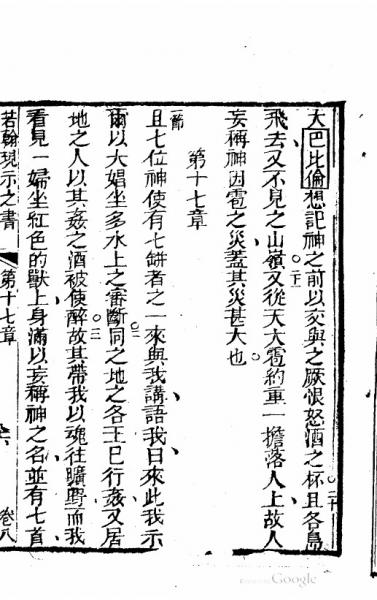 大巴比倫想記神之前以交與之厥恨怒酒之杯且各島
飛去又不見之山嶺又從天大雹約重一擔落人上故人
妄稱神因雹之災蓋其災甚大也
第十七章
一節
且七位神使有七缾者之一來與我講語我曰來此我示
爾以大娼坐多水上之審斷同之地之各王已行姦又居
地之人以其姦之酒被使醉故其帶我以魂往曠野而我
看見一婦坐紅色的獸上身滿以妄稱神之名並有七首
若翰現示之書
第十七章
卷八
Google